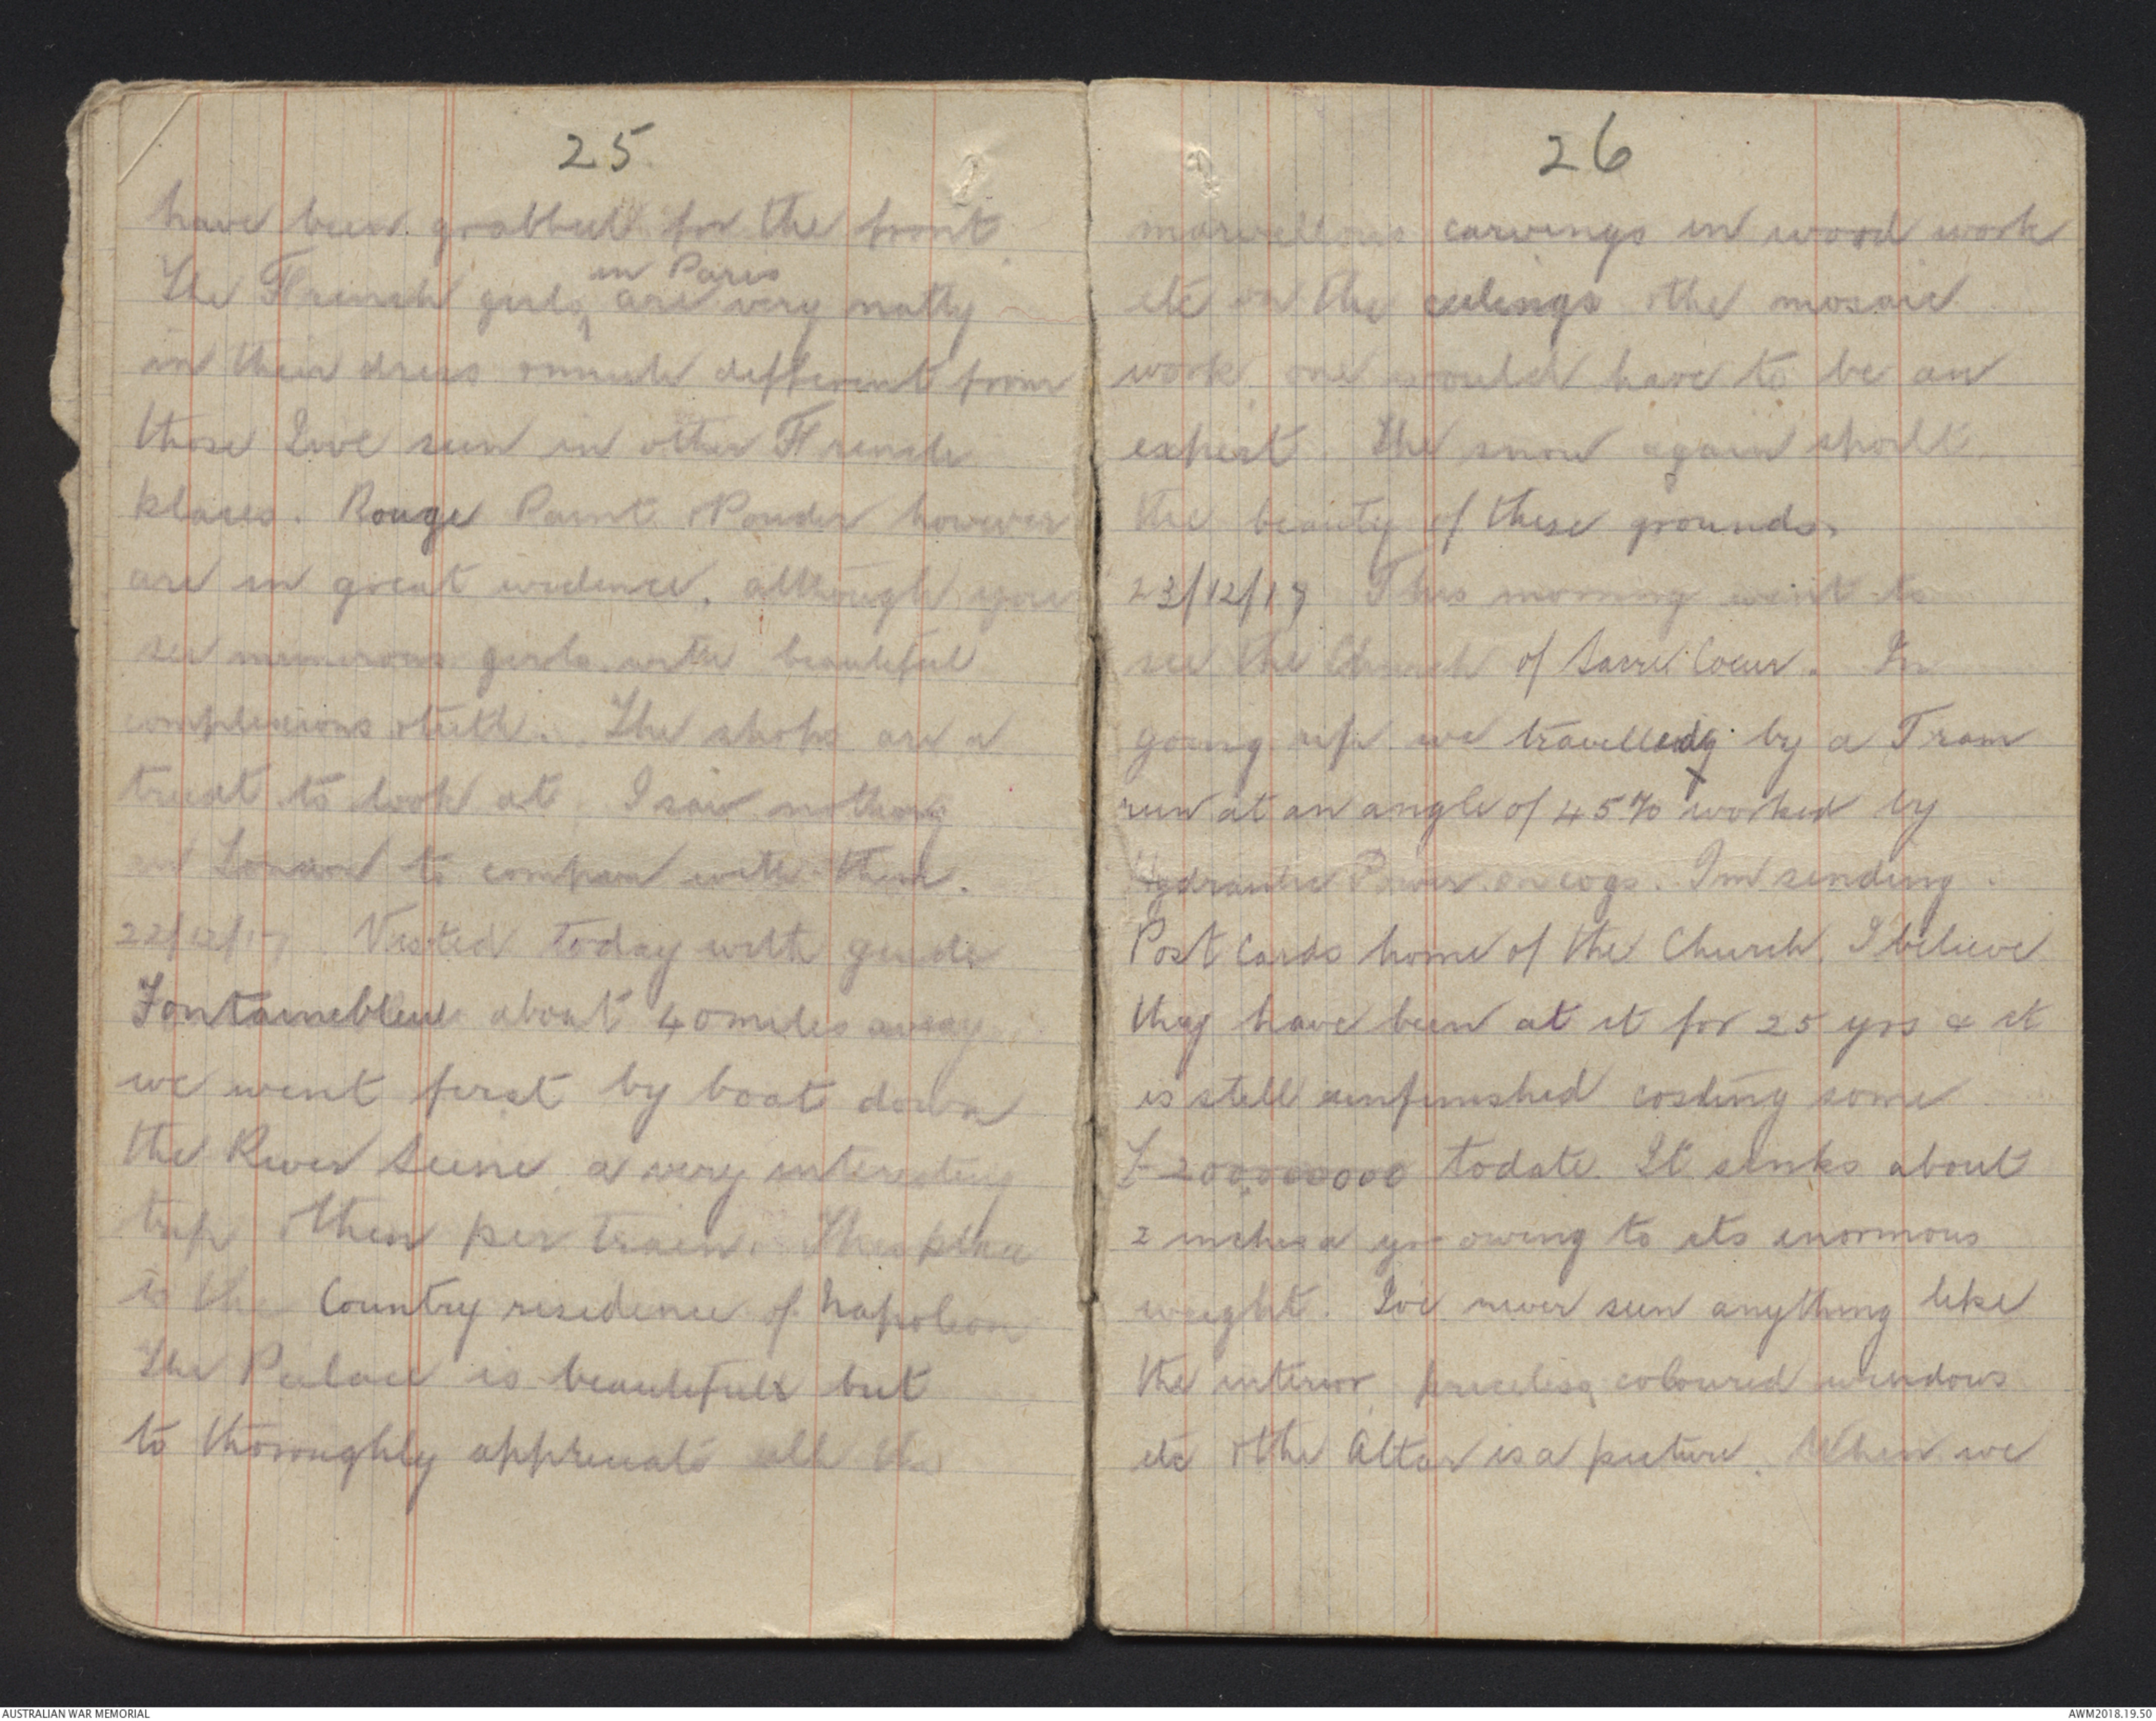 25
have been grabbed for the front
The French girls in Paris are very natty
in their dress & much different from
those I've seen in other French
places. Rouge Paint & Powder however
are in great evidence, although you
see numerous girls with beautiful
complexions & teeth. The shops are a
treat to look at. I saw nothing
in London to compare with them.
22/12/17. Visted today with guide
Fontainebleu about 40 miles away
we went first by boat down
the River Seine a very interesting
trip & then per train. This place
is the Country residence of Napoleon
The Palace is beautiful but
to thoroughly appreciate all the
26
marvellous carvings in wood work
etc on the ceilings & the mosaic
work one would have to be an
expert. The snow again spoilt
the beauty of these grounds.
23/12/17 This morning went to
see the Church of Sacre Coeur. In
going up we travelled by a Tram
run at an angle of 45% worked by
Hydraulic Power on cogs. Im sending
Post Cards home of the Church. I believe
they have been at it for 25 yrs & it
is still unfinished costing some
£200,000000 todate. It sinks about
2 inches a yr owing to its enormous
weight. Ive never seen anything like
the interior, priceless coloured windows
etc & the Altar is a picture. When we
AUSTRALIAN WAR MEMORIAL
AWM2018.19.50